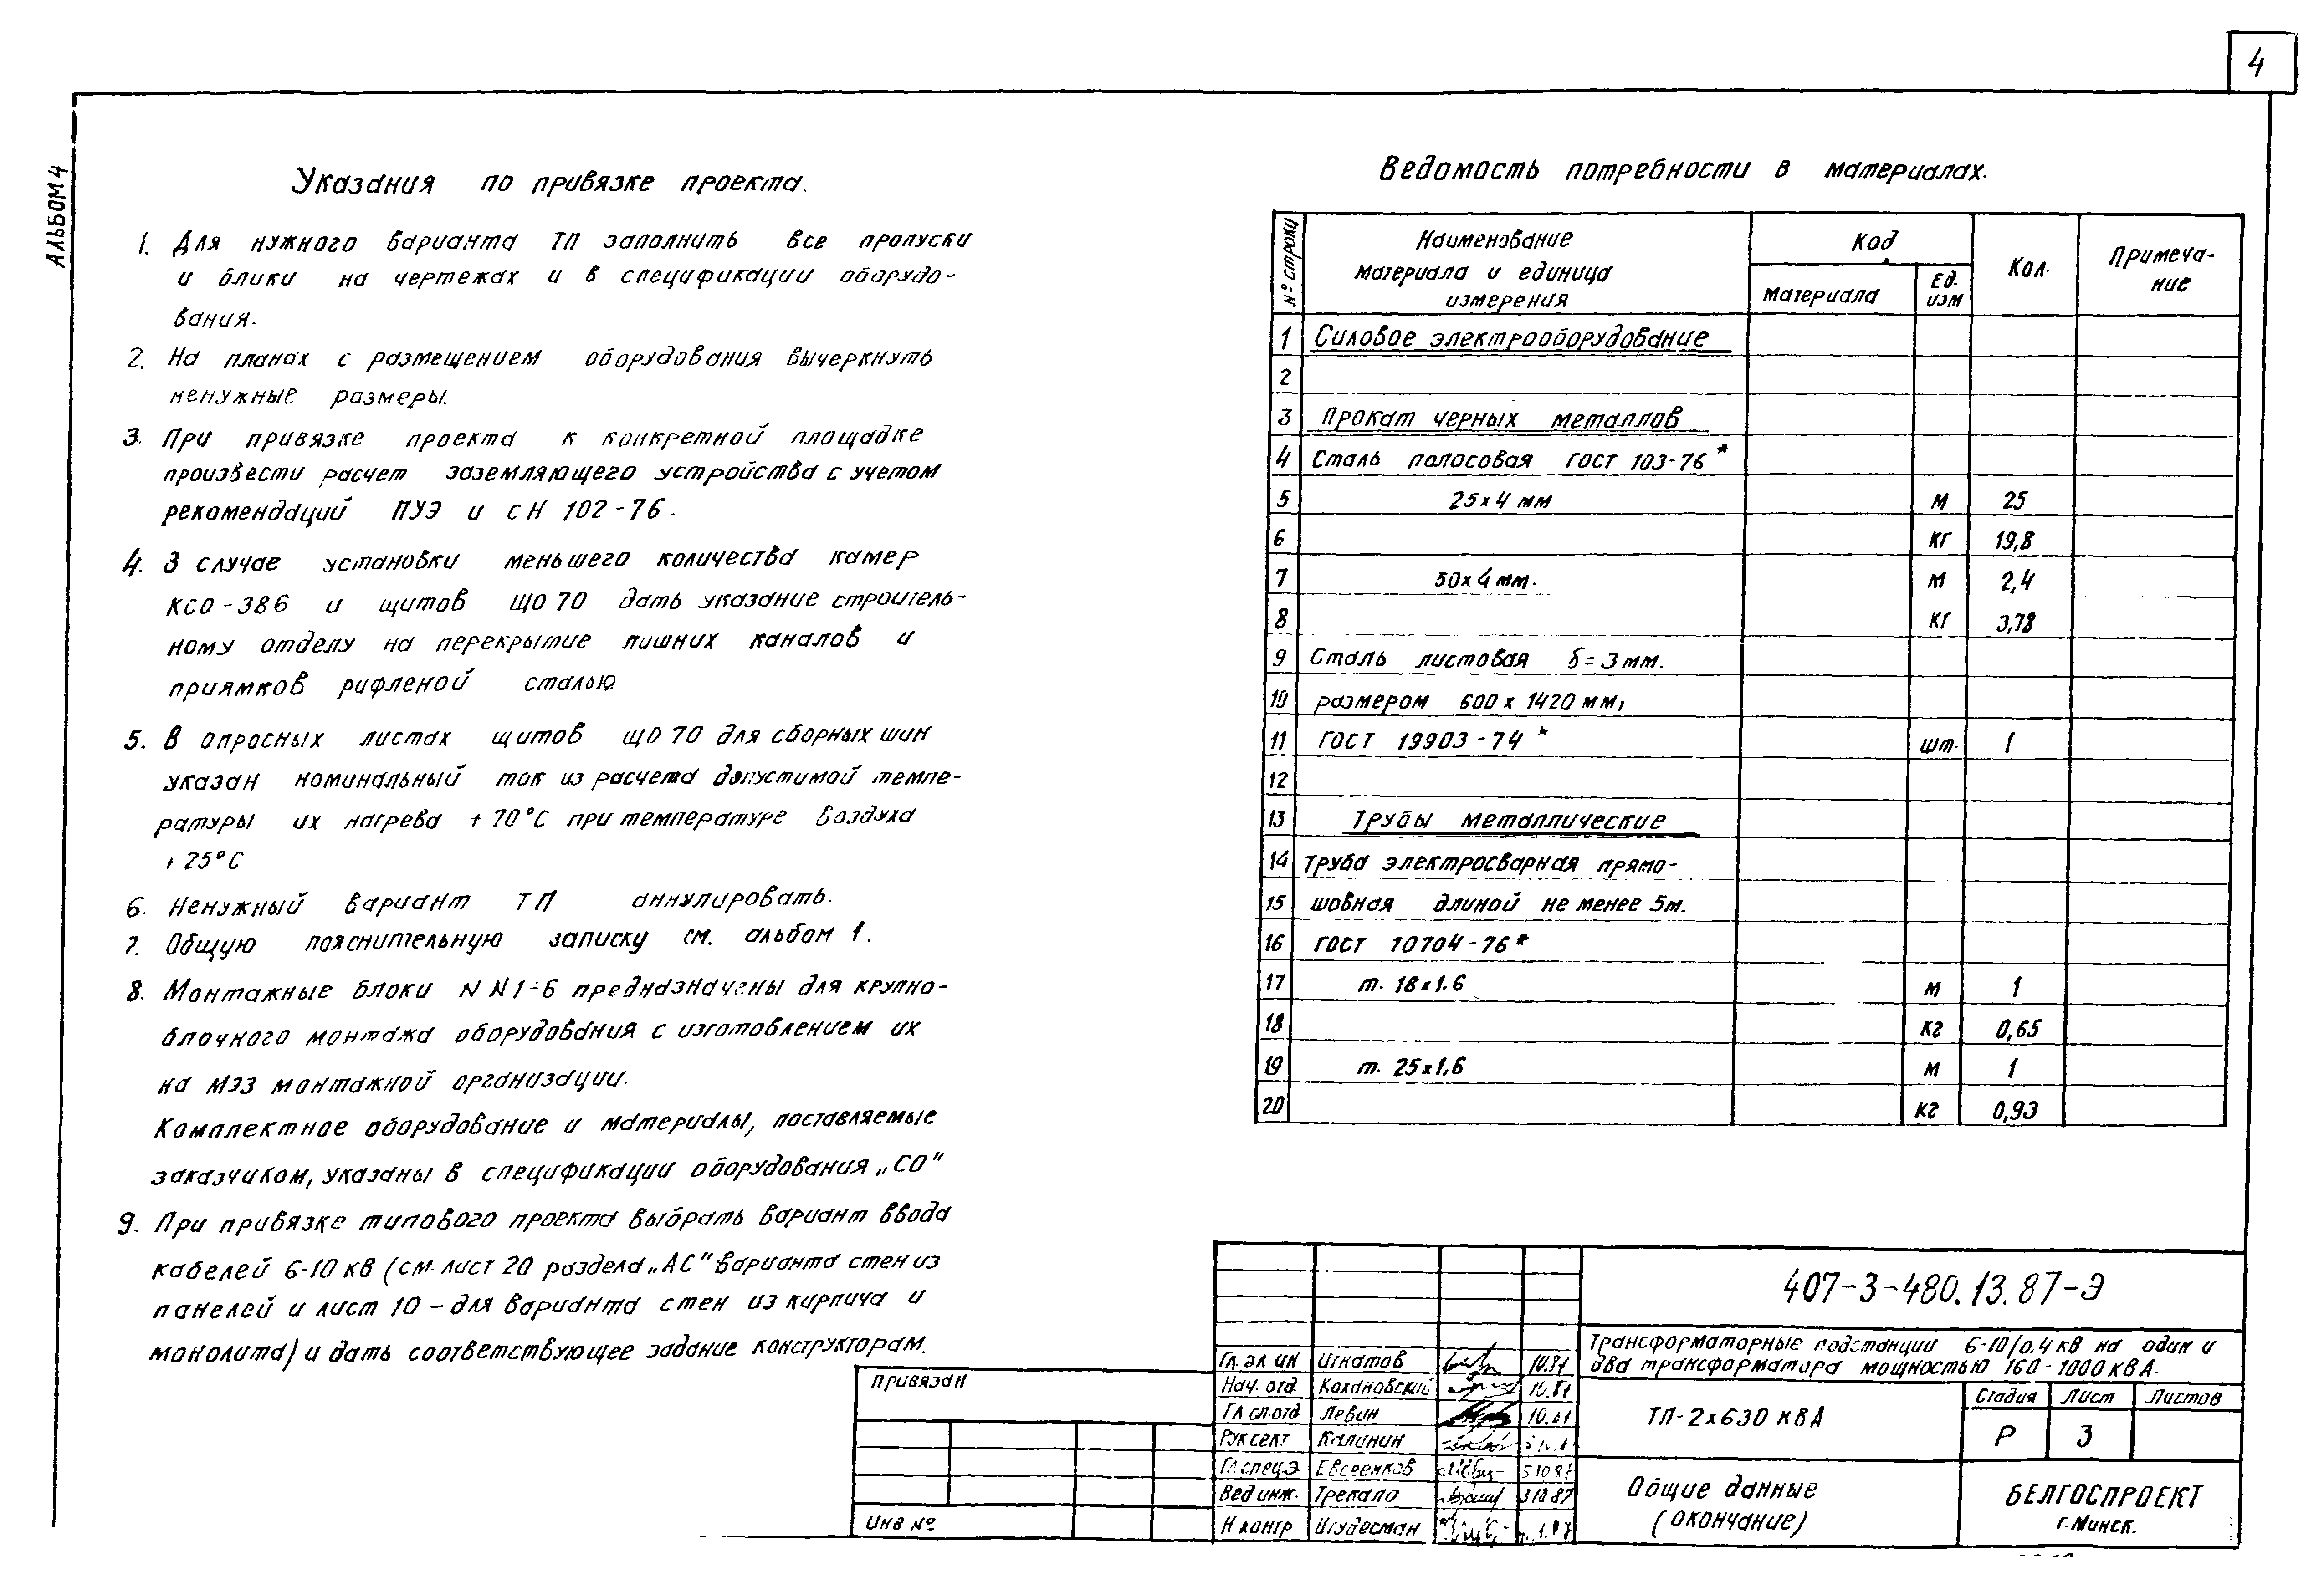 4
Альбом 4
Указания по привязке проекта.
1. Для нужного варианта ТП заполнить все пропуски
и блики на чертежах и в спецификации оборудо-
вания.
2. На планах с размещением оборудования вычеркнуть
ненужные размеры.
3. При привязке проекта к конкретной площадке
произвести расчет заземляющего устройства с учетом
рекомендаций ПУЭ и СН 102-76.
4. В случае установки меньшего количества камер
КСО-386 и щитов ЩО 70 дать указание строитель-
ному отделу на перекрытие лишних каналов и
приямков рифленой сталью.
5. В опросных листах щитов ЩО 70 для сборных шин
указан номинальный ток из расчета допустимой темпе-
ратуры их нагрева +70°С при температуре воздуха
+25°С
6. Ненужный вариант ТП аннулировать.
7. Общую пояснительную записку см. альбом 1.
8. Монтажные блоки NN1÷6 предназначены для крупно-
блочного монтажа оборудования с изготовлением их
на МЭЗ монтажной организации.
Комплектное оборудование и материалы, поставляемые
заказчиком, указаны в спецификации оборудования „СО"
9. При привязке типового проекта выбрать вариант ввода
кабелей 6-10 кв (см. лист 20 раздела „АС" варианта стен из
панелей и лист 10 - для варианта стен из кирпича и
монолита) и дать соответствующее задание конструкторам.
Ведомость потребности в материалах.
№ строки
Наименование
материала и единица
измерения
Код
материала
Ед.
изм
Кол.
Примеча-
ние
1 Силовое электрооборудование
2
3 Прокат черных металлов
4 Сталь полосовая ГОСТ 103-76*
5 25х4 мм м 25
6 кг 19,8
7 50х4 мм. м 2,4
8 кг 3,78
9 Сталь листовая δ=3мм.
10 размером 600 х 1420 мм,
11 ГОСТ 19903-74* шт. 1
12
13 Трубы металлические
14 Труба электросварная прямо-
15 шовная длиной не менее 5м.
16 ГОСТ 10704-76*
17 т. 18х1.6 м 1
18 кг 0,65
19 т. 25х1,6 м 1
20 кг 0,93
407-3-480.13.87-Э
Трансформаторные подстанции 6-10/0,4 кв на один и
два трансформатора мощностью 160-1000 кВА.
Гл. эл ин Игнатов 10.87
Нач. отд Кохановский 10.87
Гл сп.отд Левин
Рук сект Каланин
Гл спец.э Евсеенков 5 10 87
Вед инж. Трекало 3 10 87
Н контр Изудесман
ТП-2х630 кВА
Стадия Лист Листов
Р 3
Общие данные
(окончание)
БЕЛГОСПРОЕКТ
г. Минск.
Привязан
Инв №